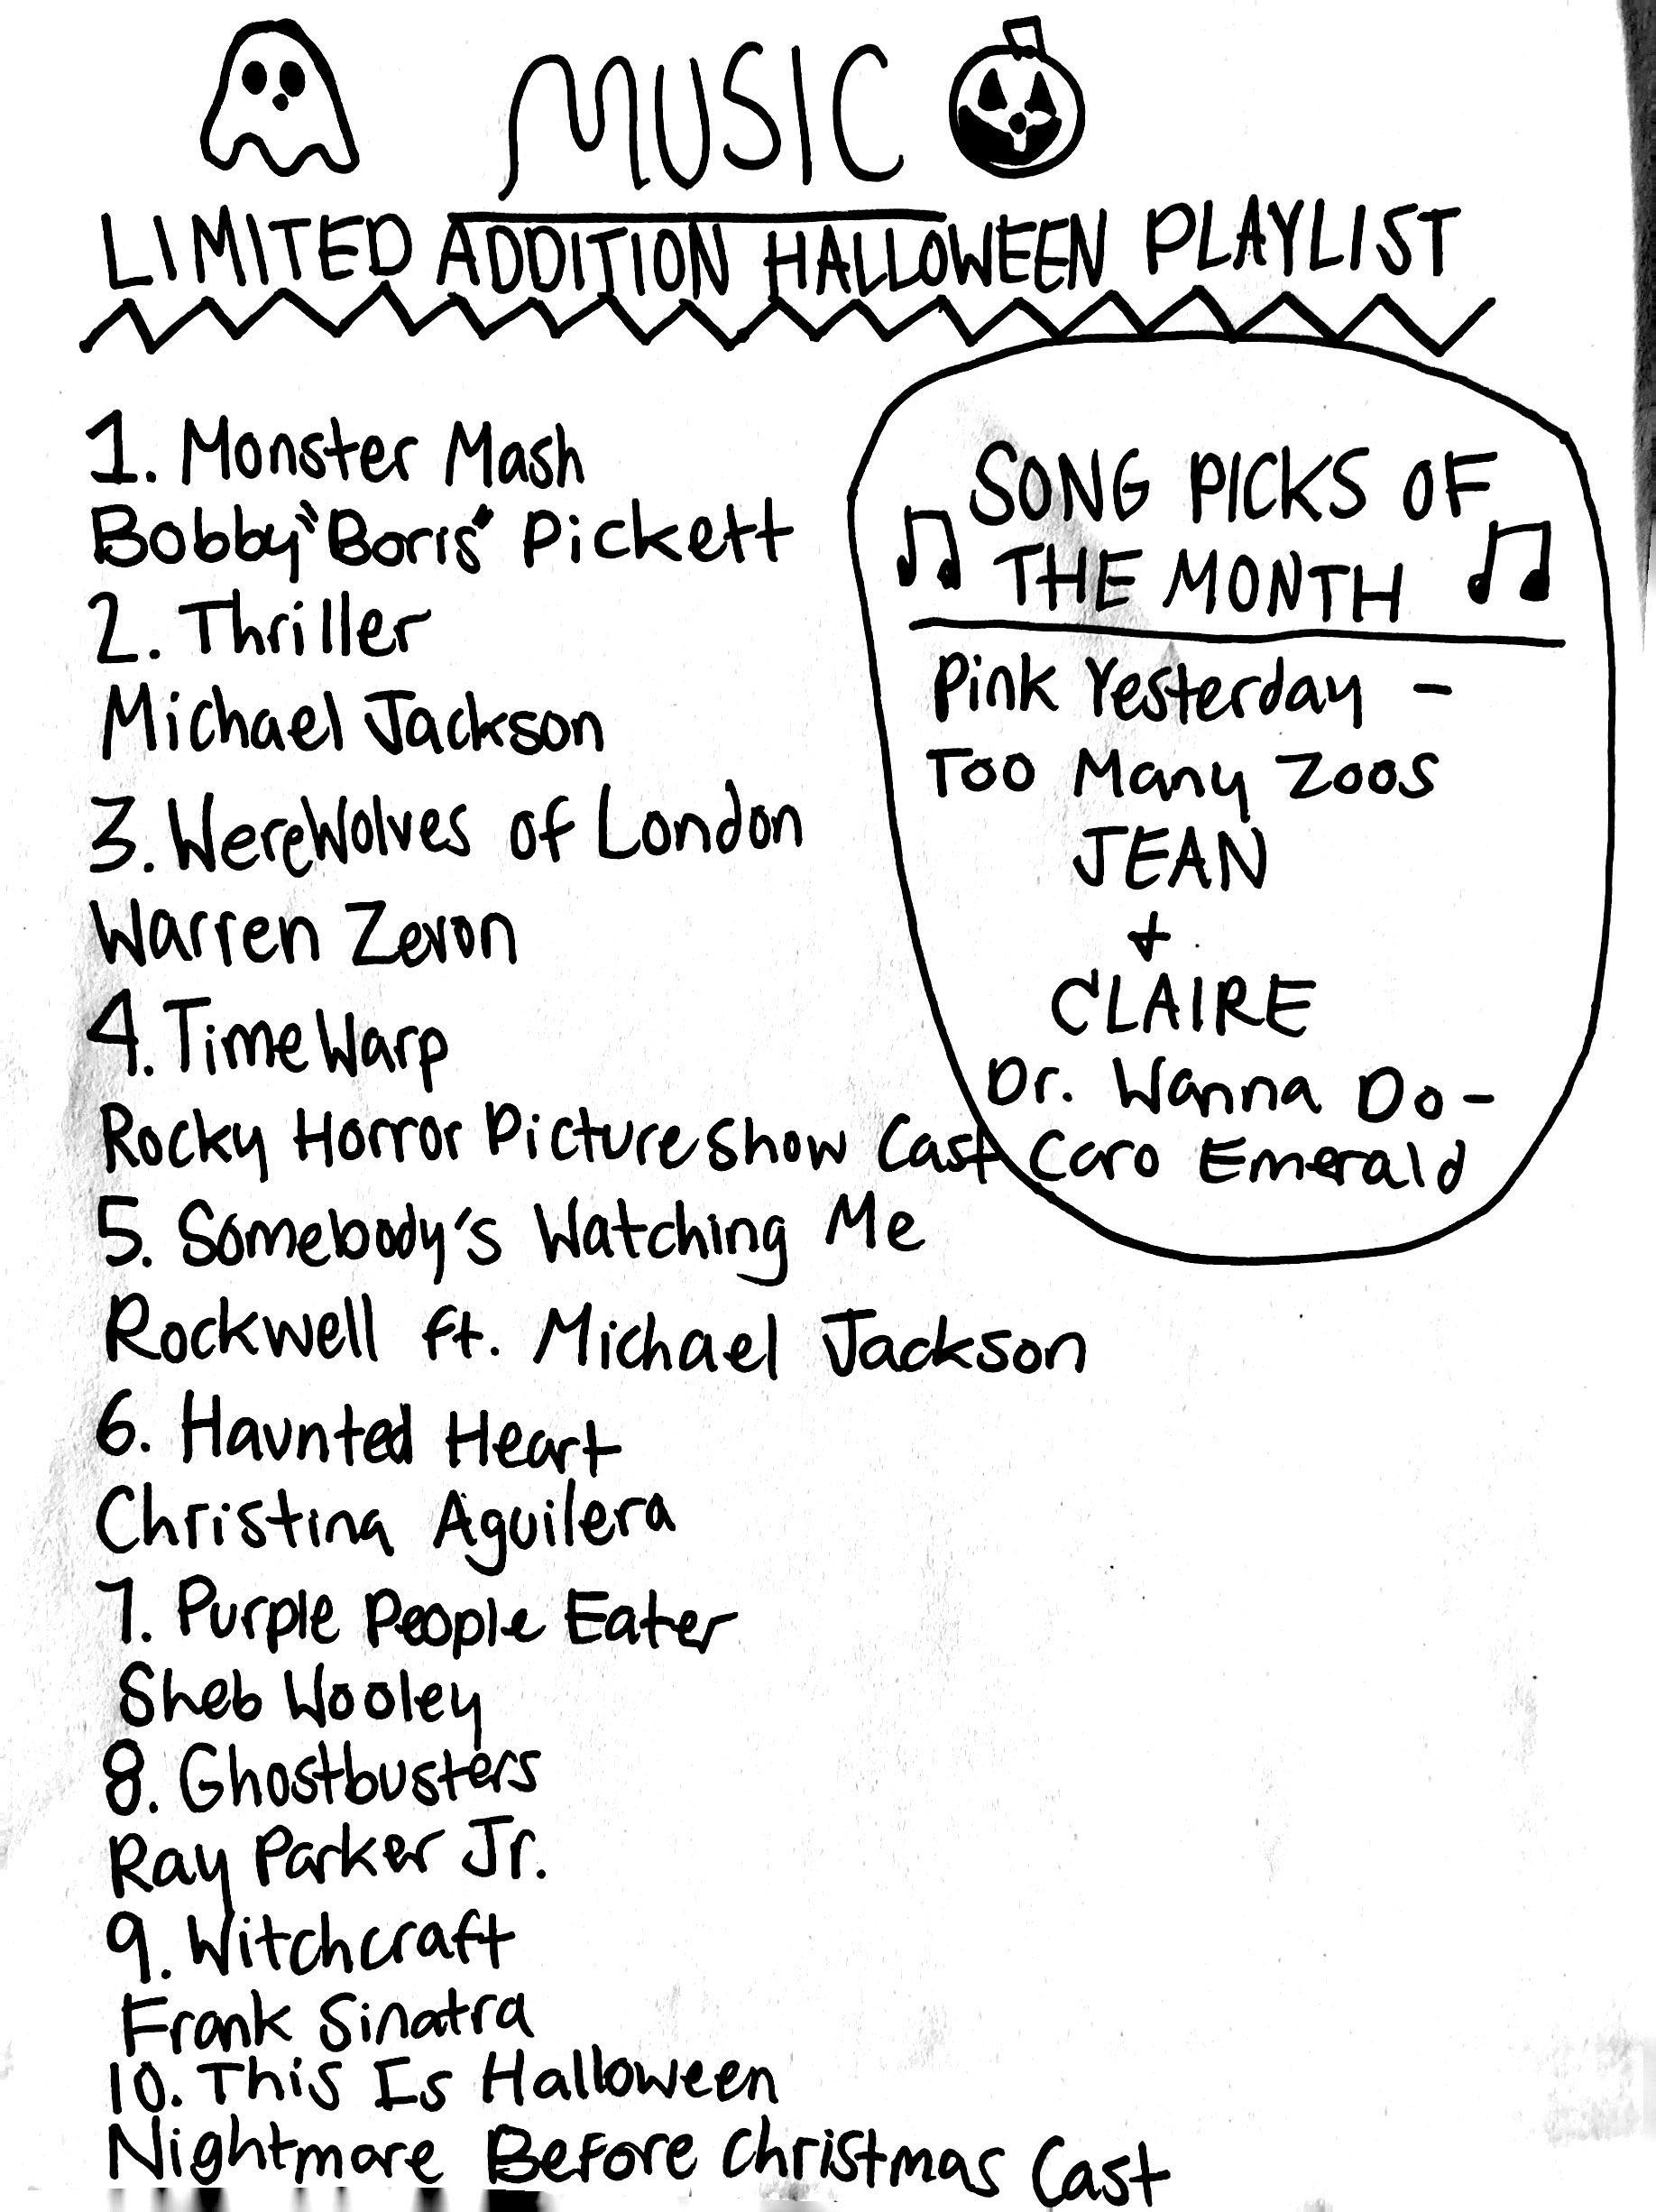 MUSIC
LIMITED ADDITION HALLOWEEN PLAYLIST
1. Monster Mash
Bobby "Boris" Pickett
2. Thriller
Michael Jackson
3. WereWolves of London
Warren Zevon
4. Time Warp
Rocky Horror Picture Show Cast
5. Somebody's Watching Me
Rockwell ft. Michael Jackson
6. Haunted Heart
Christina Aguilera
7. Purple People Eater
Sheb Wooley
8. Ghostbusters
Ray Parker Jr.
9. Witchcraft
Frank Sinatra
10. This Is Halloween
Nightmare Before Christmas Cast
SONG PICKS OF
THE MONTH
Pink Yesterday -
Too Many Zoos
JEAN
+
CLAIRE
Dr. Wanna Do -
Caro Emerald